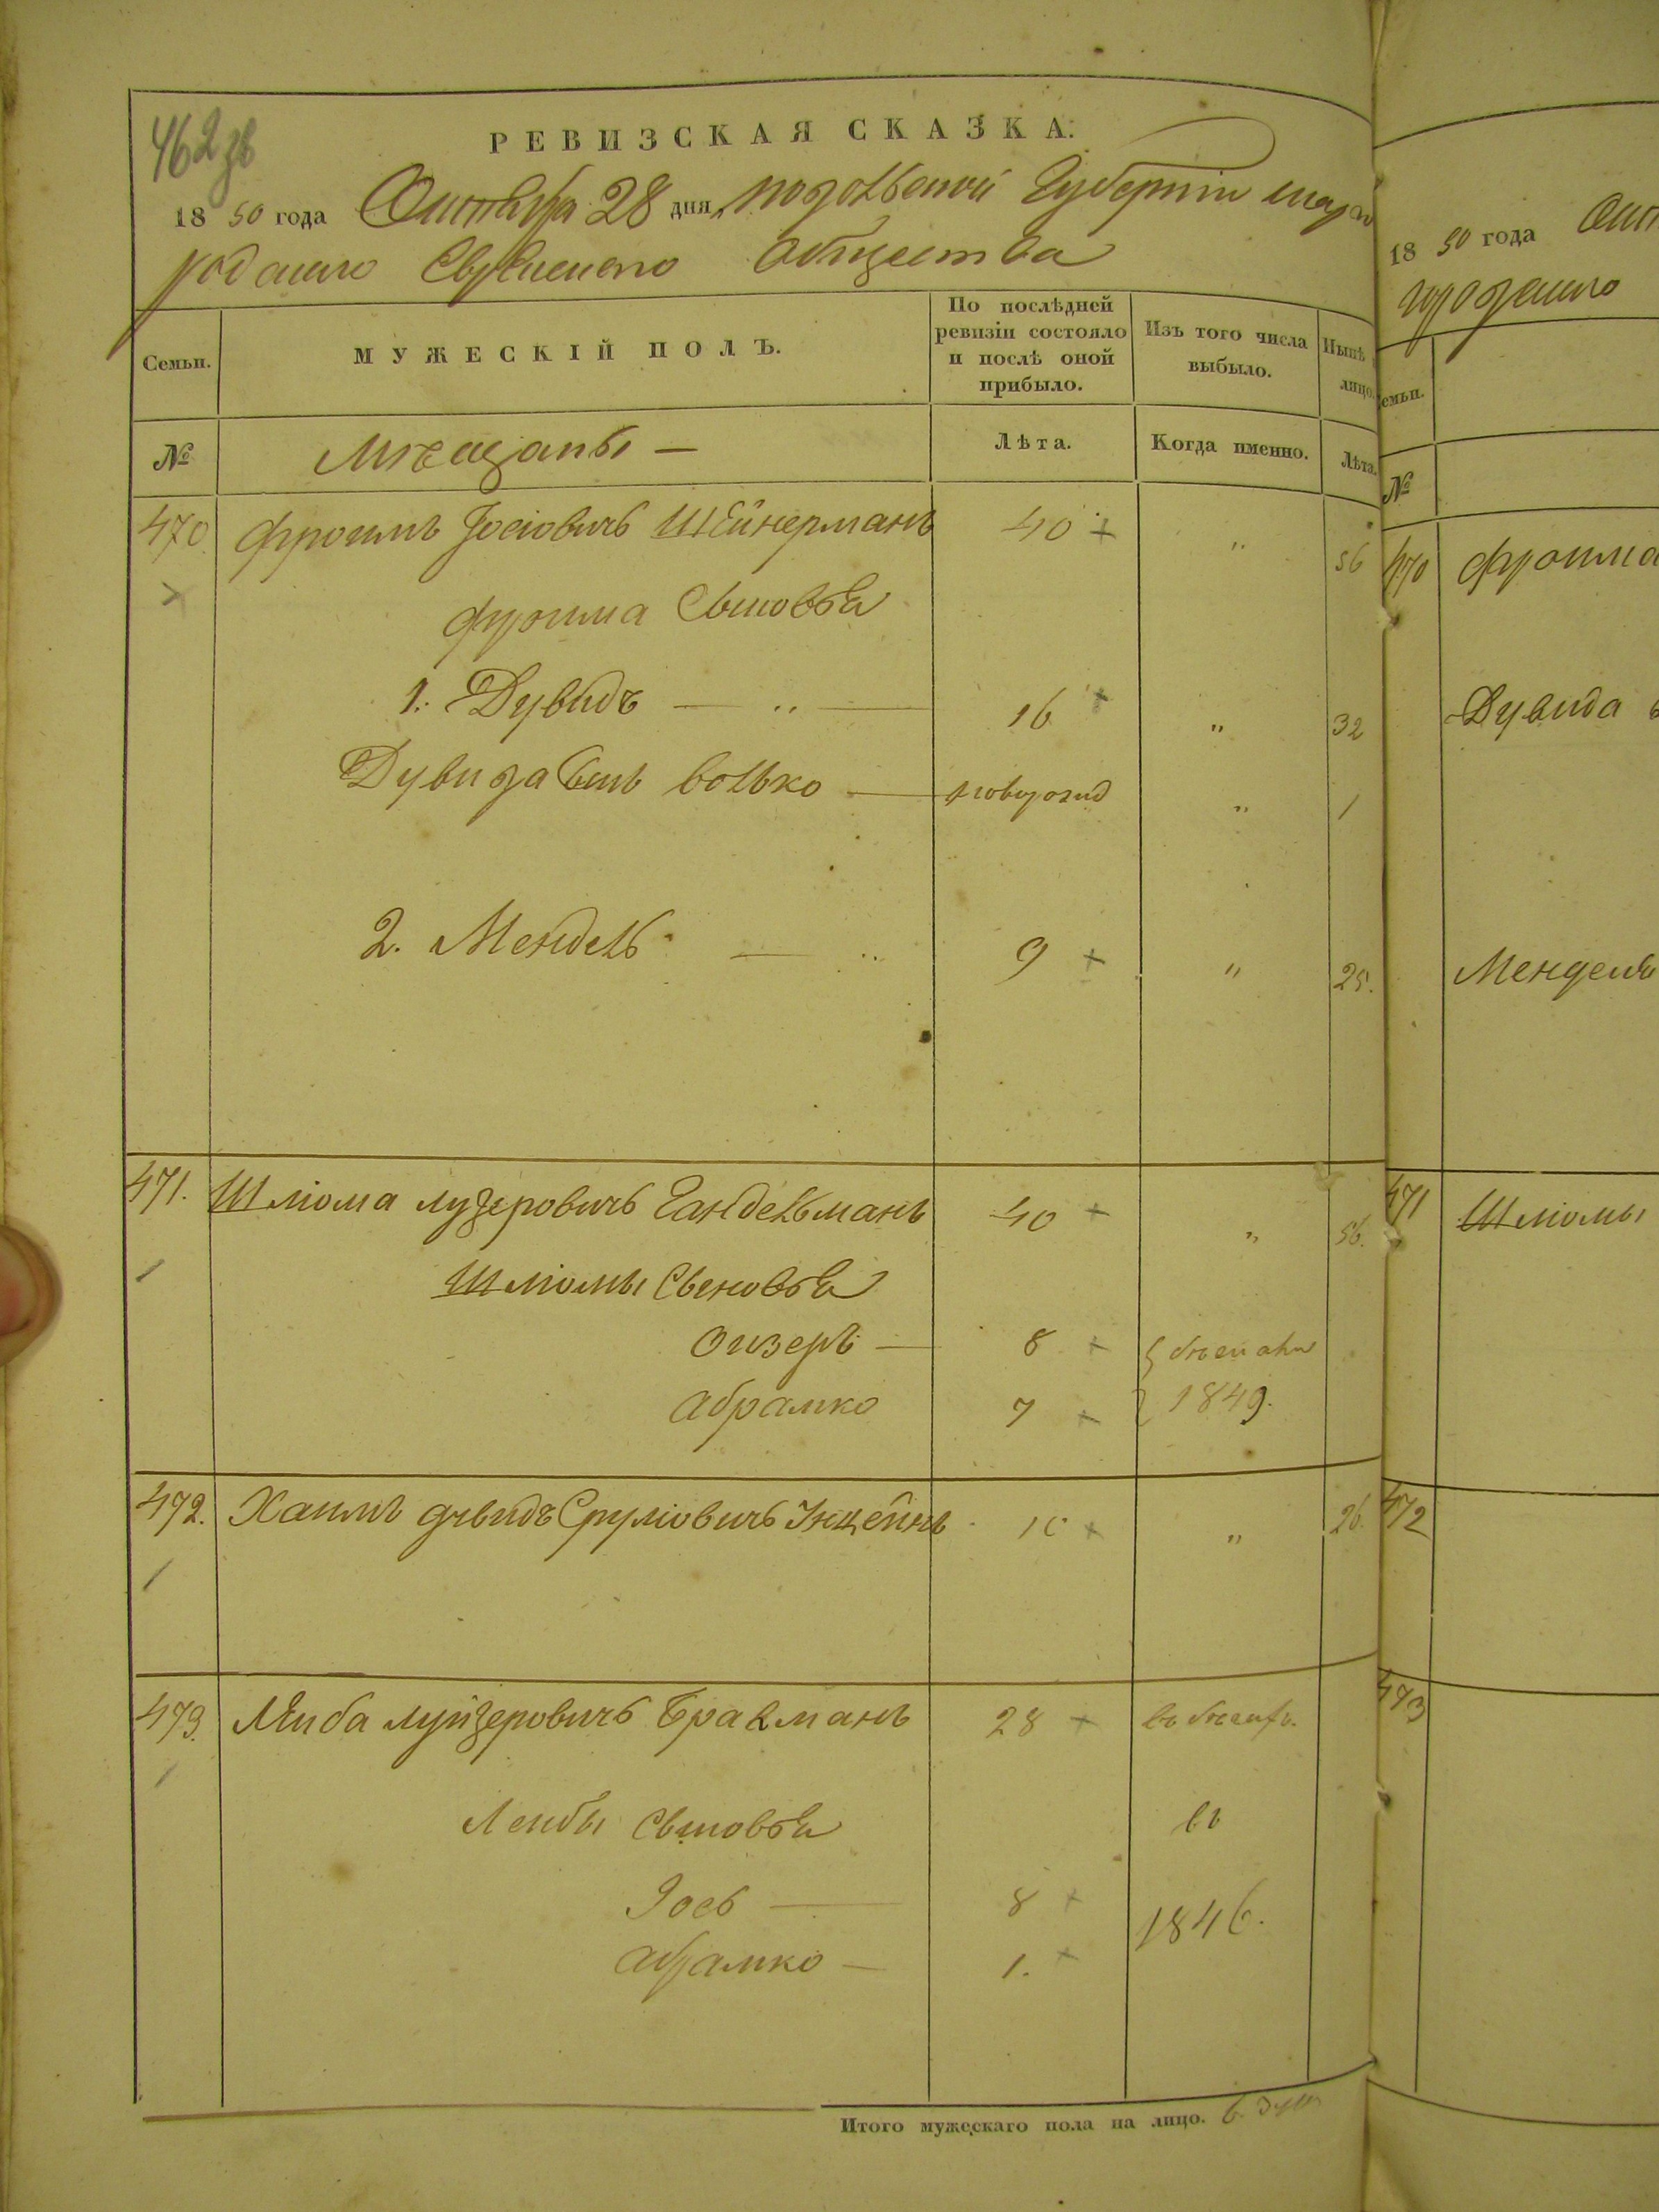 462
РЕВИЗСКАЯ СКАЗКА.
1850 года Октября 28 дня, подольской Губернии шарго
родского Еврейского Общества
Семьи.
МУЖЕСКІЙ ПОЛЪ.
По послѣдней ревизіи состояло и послѣ оной прибыло.
Изъ того числа выбыло.
Нынѣ лицо.
№
Мѣщаны —
Лѣта.
Когда именно.
Лѣта.
470 Фроимъ Іосіовичъ Шейнерманъ 40 + „ 56
Фроима Сыновья
1. Дувидъ — „ — 16 + „ 32
Дувида Сынъ волько — новорожд „ 1
2. Мендель — „ 9 + „ 25.
471. Шліома лузеровичъ Гандельманъ 40 + „ 56.
Шліомы Сыновья
Оизеръ — 8 +
Абрамко 7 + 1849.
472. Хаимъ дувидъ Сруліовичъ Інцейнъ 10 + „ 26.
473. Леиба луйзеровичъ Бракманъ 28 + въ
Леибы Сыновья въ
Іось — 8 + 1846.
Абрамко — 1. +
Итого мужескаго пола на лицо. 6
1850 года Окт
городского
Семьи.
№
470 Фроима
Дувида
Менделя
471 Шліомы
472
473